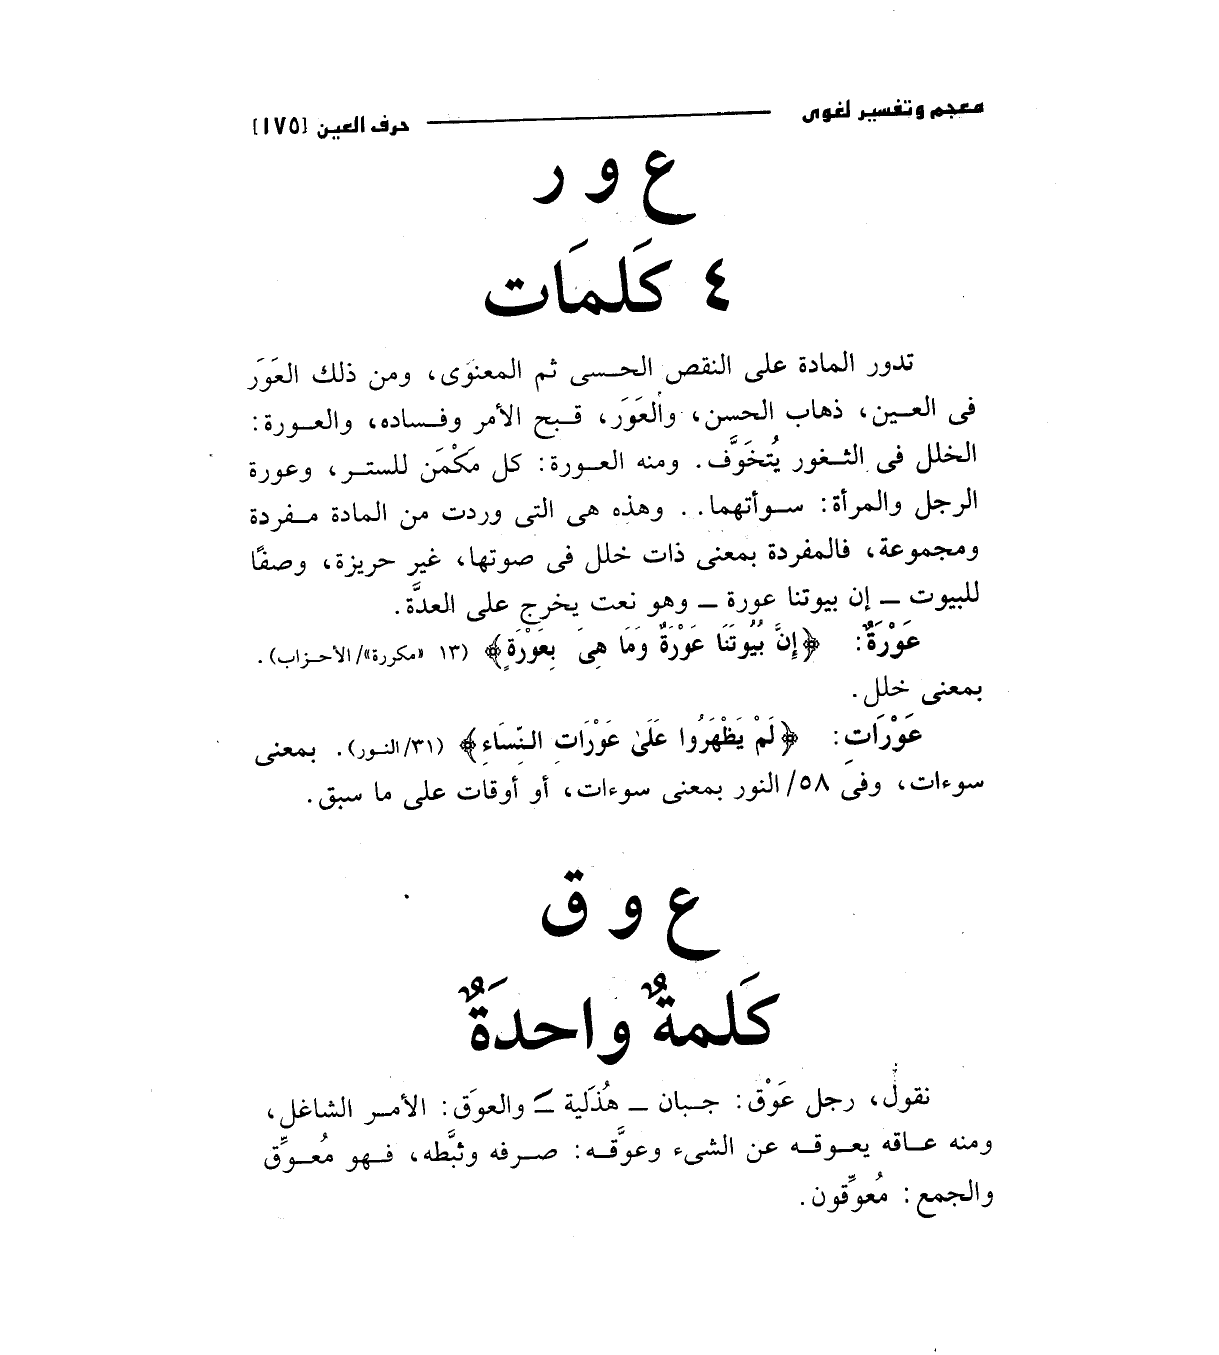 معجم وتفسير لغوى حرف العين [١٧٥]
ع و ر
٤ كَلمَات
تدور المادة على النقص الحسى ثم المعنوى، ومن ذلك العَوَر
فى العين، ذهاب الحسن، والعَوَر، قبح الأمر وفساده، والعورة:
الخلل فى الثغور يُتخَوَّف. ومنه العورة: كل مَكْمَن للستر، وعورة
الرجل والمرأة: سوأتهما.. وهذه هى التى وردت من المادة مفردة
ومجموعة، فالمفردة بمعنى ذات خلل فى صوتها، غير حريزة، وصفًا
للبيوت ــ إن بيوتنا عورة ــ وهو نعت يخرج على العدَّة.
عَوْرَةٌ: ﴿إِنَّ بُيُوتَنَا عَوْرَةٌ وَمَا هِىَ بِعَوْرَةٍ﴾ (١٣ «مكررة»/الأحزاب).
بمعنى خلل.
عَوْرَاتِ: ﴿لَمْ يَظْهَرُوا عَلَىٰ عَوْرَاتِ النِّسَاءِ﴾ (٣١/النور). بمعنى
سوءات، وفى ٥٨/ النور بمعنى سوءات، أو أوقات على ما سبق.
ع و ق
كَلمةٌ واحدَةٌ
نقول، رجل عَوْق: جبان ــ هُذَلية ــ والعوَق: الأمر الشاغل،
ومنه عاقه يعوقه عن الشىء وعوَّقه: صرفه وثبَّطه، فهو مُعوِّق
والجمع: مُعوِّقون.